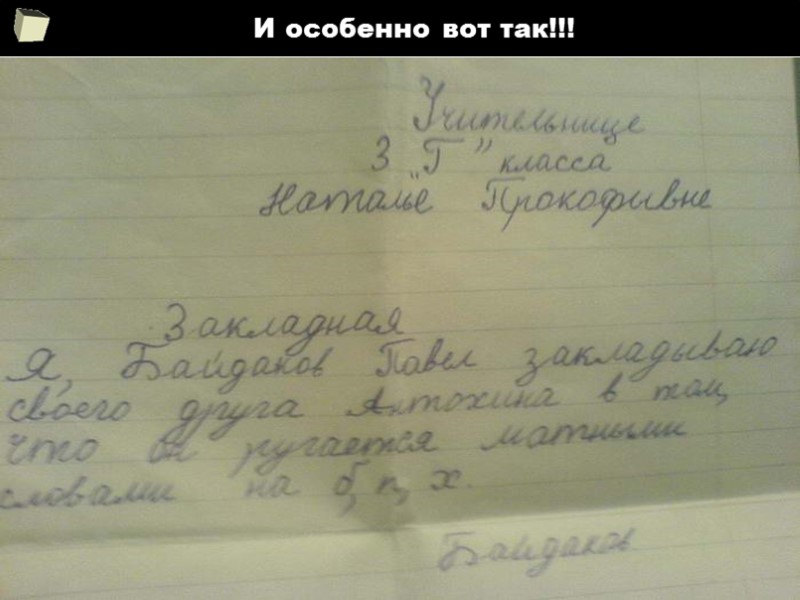 И особенно вот так!!!
Учительнице
3 „Г" класса
Наталье Прокофывне
Закладная
Я, Байдаков Павел закладываю
своего друга Антохина в том,
что он ругается матными
словами на б, п, х.
Байдаков